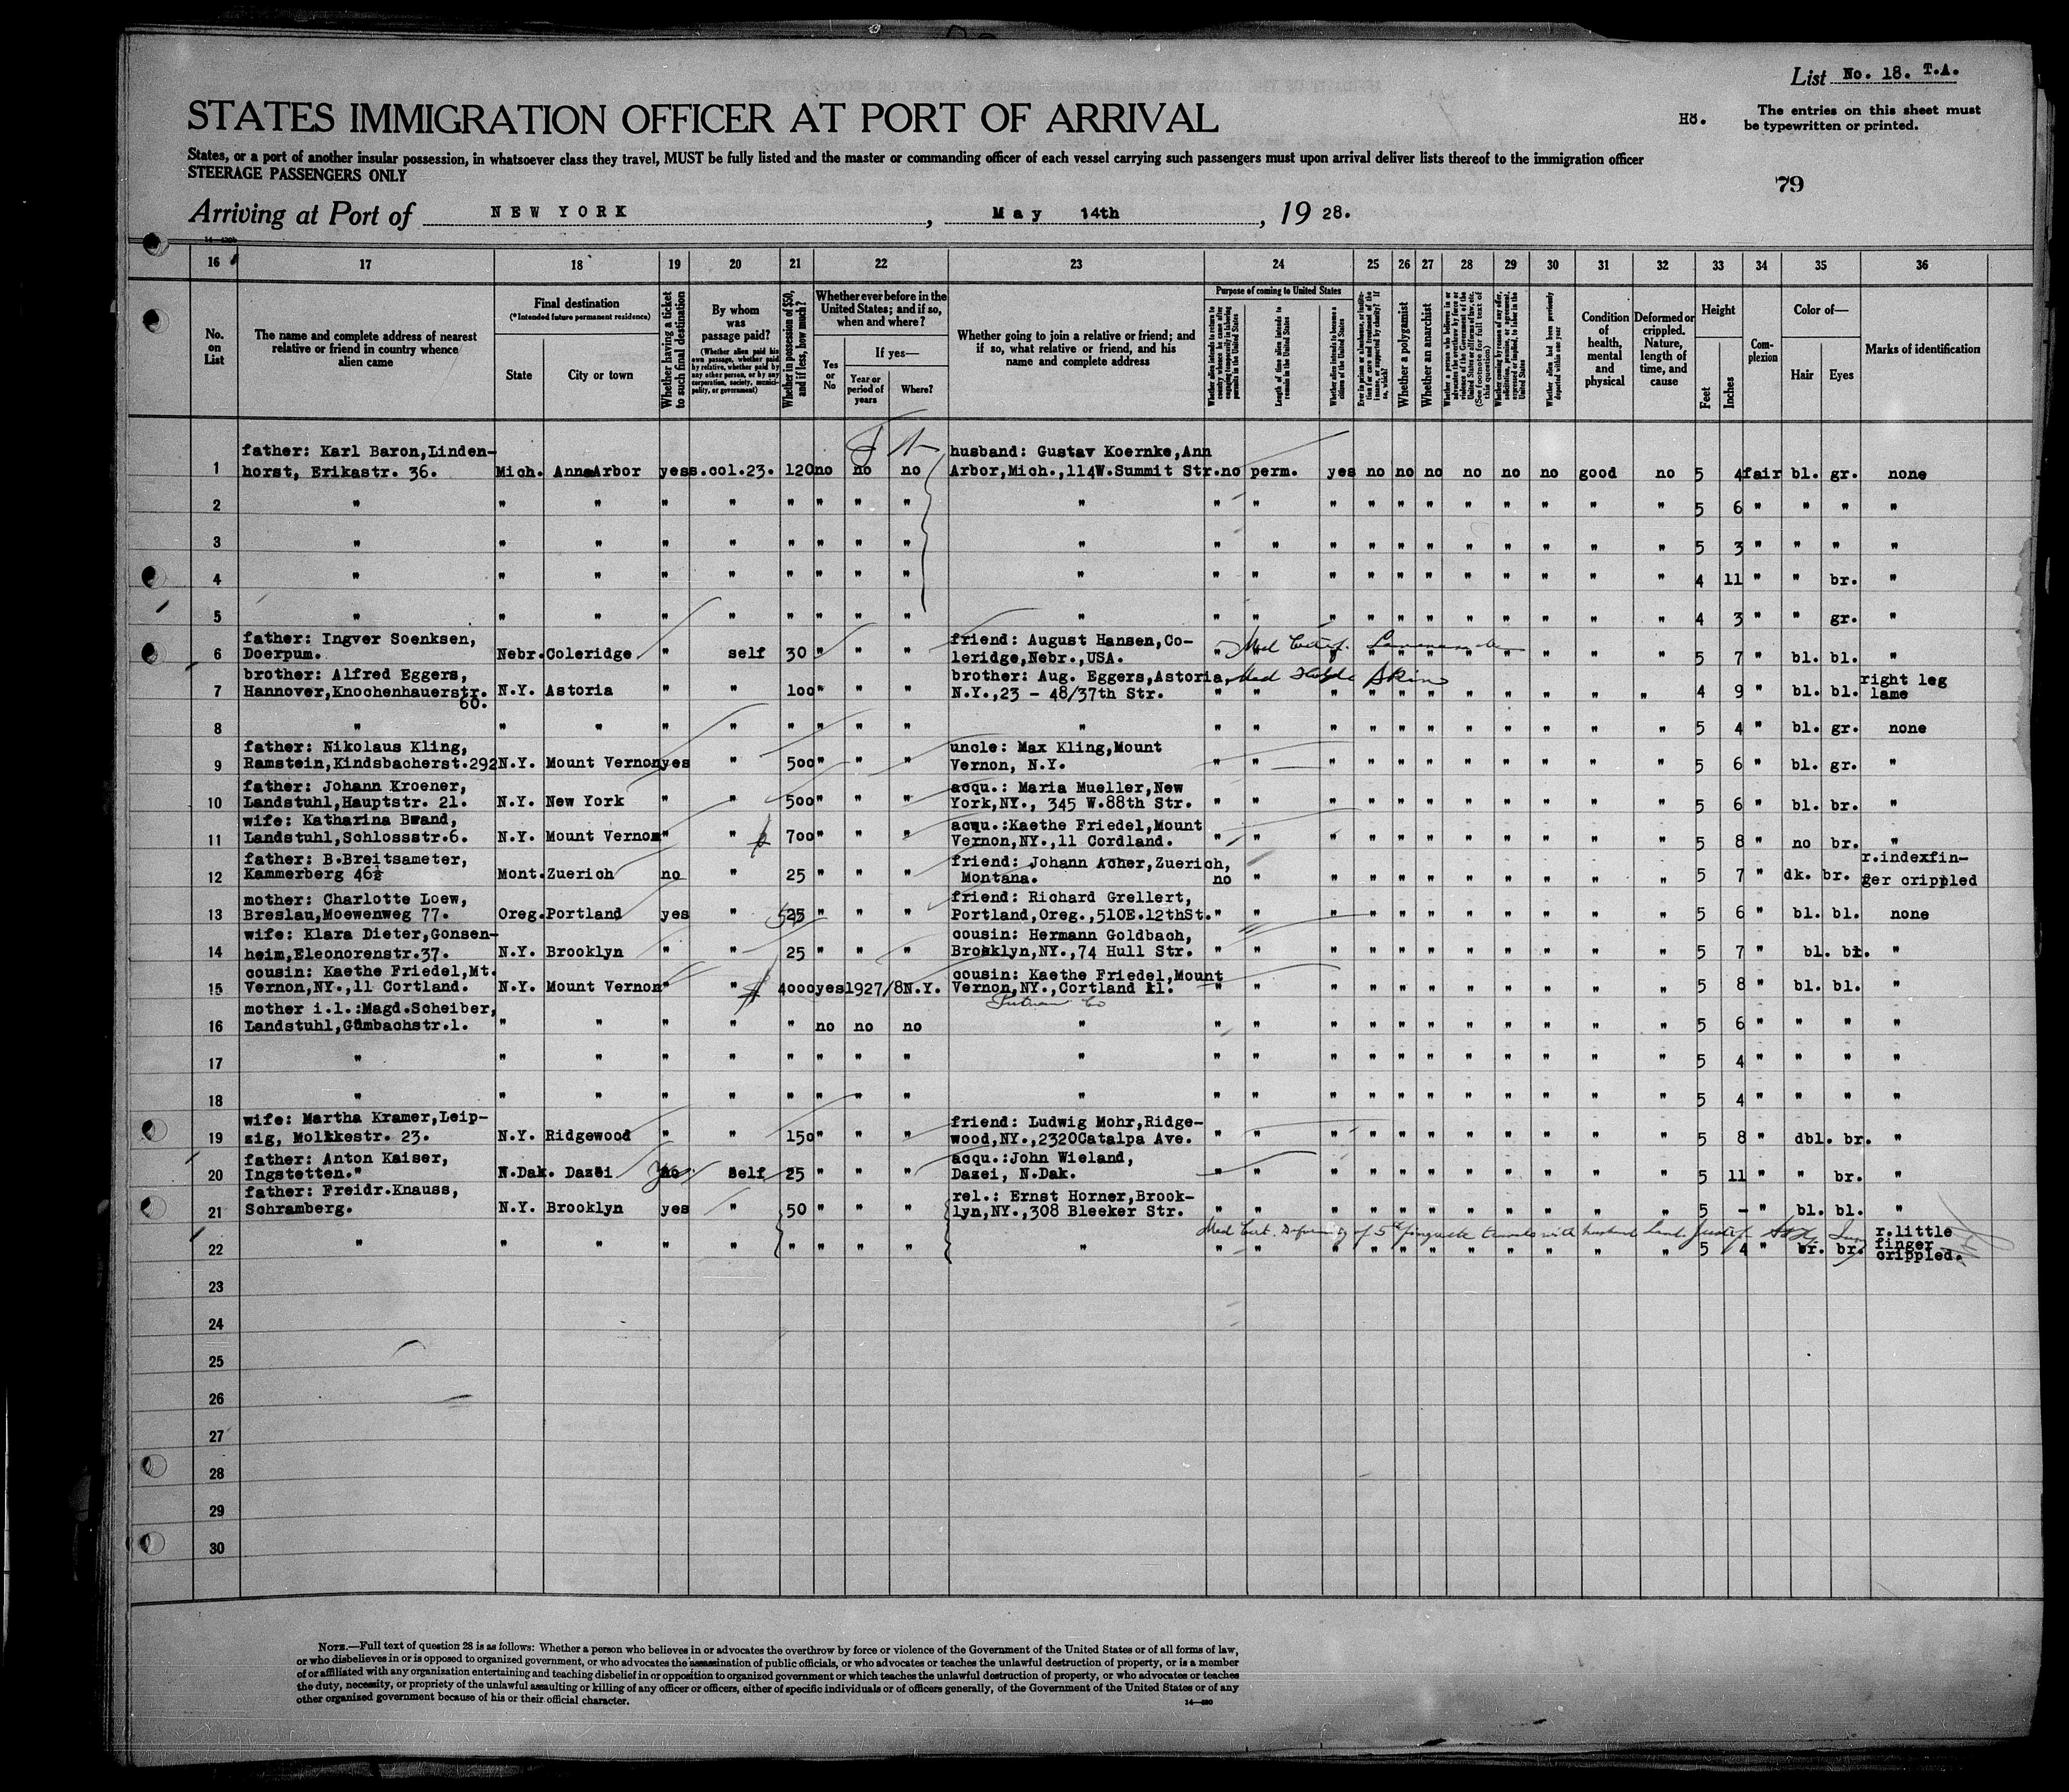 List No. 18. T.A.
STATES IMMIGRATION OFFICER AT PORT OF ARRIVAL
H8.
The entries on this sheet must
be typewritten or printed.
States, or a port of another insular possession, in whatsoever class they travel, MUST be fully listed and the master or commanding officer of each vessel carrying such passengers must upon arrival deliver lists thereof to the immigration officer
STEERAGE PASSENGERS ONLY
79
Arriving at Port of NEW YORK, May 14th, 19 28.
16 17 18 19 20 21 22 23 24 25 26 27 28 29 30 31 32 33 34 35 36
No. on List
The name and complete address of nearest relative or friend in country whence alien came
Final destination
(*Intended future permanent residence)
State
City or town
Whether having a ticket to such final destination
By whom was passage paid?
(Whether alien paid his own passage, whether paid by relative, whether paid by any other person, or by any corporation, society, municipality, or government)
Whether in possession of $50, and if less, how much?
Whether ever before in the United States; and if so, when and where?
Yes or No
If yes—
Year or period of years
Where?
Whether going to join a relative or friend; and if so, what relative or friend, and his name and complete address
Purpose of coming to United States
Length of time alien intends to remain in the United States
Whether alien intends to become a citizen of the United States
Whether a polygamist
Whether an anarchist
Condition of health, mental and physical
Deformed or crippled. Nature, length of time, and cause
Height
Feet
Inches
Complexion
Color of—
Hair
Eyes
Marks of identification
father: Karl Baron,Linden- husband: Gustav Koernke,Ann
1 horst, Erikastr. 36. Mich. Ann Arbor yes s.col.23. 120 no no no Arbor,Mich.,114W.Summit Str. no perm. yes no no no no no no good no 5 4 fair bl. gr. none
2 " " " " " " " " " " " " " " " " " " " " " 5 6 " " " "
3 " " " " " " " " " " " " " " " " " " " " " 5 3 " " " "
4 " " " " " " " " " " " " " " " " " " " " " 4 11 " " br. "
5 " " " " " " " " " " " " " " " " " " " " " 4 3 " " gr. "
father: Ingver Soenksen, friend: August Hansen,Co-
6 Doerpum. Nebr. Coleridge " self 30 " " " leridge,Nebr.,USA. " " " " " " " " " " " 5 7 " bl. bl. "
brother: Alfred Eggers, brother: Aug. Eggers,Astoria, right leg
7 Hannover,Knochenhauerstr. 60. N.Y. Astoria " " 100 " " " N.Y.,23 - 48/37th Str. " " " " " " " " " " " 4 9 " bl. bl. lame
8 " " " " " " " " " " " " " " " " " " " " " 5 4 " bl. gr. none
father: Nikolaus Kling, uncle: Max Kling,Mount
9 Ramstein,Kindsbacherst.292 N.Y. Mount Vernon yes " 500 " " " Vernon, N.Y. " " " " " " " " " " " 5 6 " bl. gr. "
father: Johann Kroener, acqu.: Maria Mueller,New
10 Landstuhl,Hauptstr. 21. N.Y. New York " " 500 " " " York,NY., 345 W.88th Str. " " " " " " " " " " " 5 6 " bl. br. "
wife: Katharina Brand, acqu.:Kaethe Friedel,Mount
11 Landstuhl,Schlossstr.6. N.Y. Mount Vernon " " 700 " " " Vernon,NY.,11 Cordland. " " " " " " " " " " " 5 8 " no br. "
father: B.Breitsameter, friend: Johann Acher,Zuerich, r.indexfin-
12 Kammerberg 46½ Mont. Zuerich no " 25 " " " Montana. no " " " " " " " " " " 5 7 " dk. br. ger crippled
mother: Charlotte Loew, friend: Richard Grellert,
13 Breslau,Moewenweg 77. Oreg. Portland yes " 525 " " " Portland,Oreg.,510E.12thSt. " " " " " " " " " " " 5 6 " bl. bl. none
wife: Klara Dieter,Gonsen- cousin: Hermann Goldbach,
14 heim,Eleonorenstr.37. N.Y. Brooklyn " " 25 " " " Brooklyn,NY.,74 Hull Str. " " " " " " " " " " " 5 7 " bl. br. "
cousin: Kaethe Friedel,Mt. cousin: Kaethe Friedel,Mount
15 Vernon,NY.,11 Cortland. N.Y. Mount Vernon " " 4000 yes 1927/8 N.Y. Vernon,NY.,Cortland 11. " " " " " " " " " " " 5 8 " bl. bl. "
mother i.l.:Magd.Scheiber,
16 Landstuhl,Gumbachstr.1. " " " " " no no no " " " " " " " " " " " " 5 6 " " " "
17 " " " " " " " " " " " " " " " " " " " " " 5 4 " " " "
18 " " " " " " " " " " " " " " " " " " " " " 5 4 " " " "
wife: Martha Kramer,Leip- friend: Ludwig Mohr,Ridge-
19 zig, Moltkestr. 23. N.Y. Ridgewood " " 150 " " " wood,NY.,2320Catalpa Ave. " " " " " " " " " " " 5 8 " dbl. br. "
father: Anton Kaiser, acqu.:John Wieland,
20 Ingstetten." N.Dak. Dazei no self 25 " " " Dazei, N.Dak. " " " " " " " " " " " 5 11 " " br. "
father: Freidr.Knauss, rel.: Ernst Horner,Brook-
21 Schramberg. N.Y. Brooklyn yes " 50 " " " lyn,NY.,308 Bleeker Str. " " " " " " " " " " " 5 - " bl. bl. "
22 " " " " " " " " " " " " " " " " " " " " " 5 4 " br. br. r.little finger crippled.
23
24
25
26
27
28
29
30
NOTE.—Full text of question 28 is as follows: Whether a person who believes in or advocates the overthrow by force or violence of the Government of the United States or of all forms of law,
or who disbelieves in or is opposed to organized government, or who advocates the assassination of public officials, or who advocates or teaches the unlawful destruction of property, or is a member
of or affiliated with any organization entertaining and teaching disbelief in or opposition to organized government or which teaches the unlawful destruction of property, or who advocates or teaches
the duty, necessity, or propriety of the unlawful assaulting or killing of any officer or officers, either of specific individuals or of officers generally, of the Government of the United States or of any
other organized government because of his or their official character.